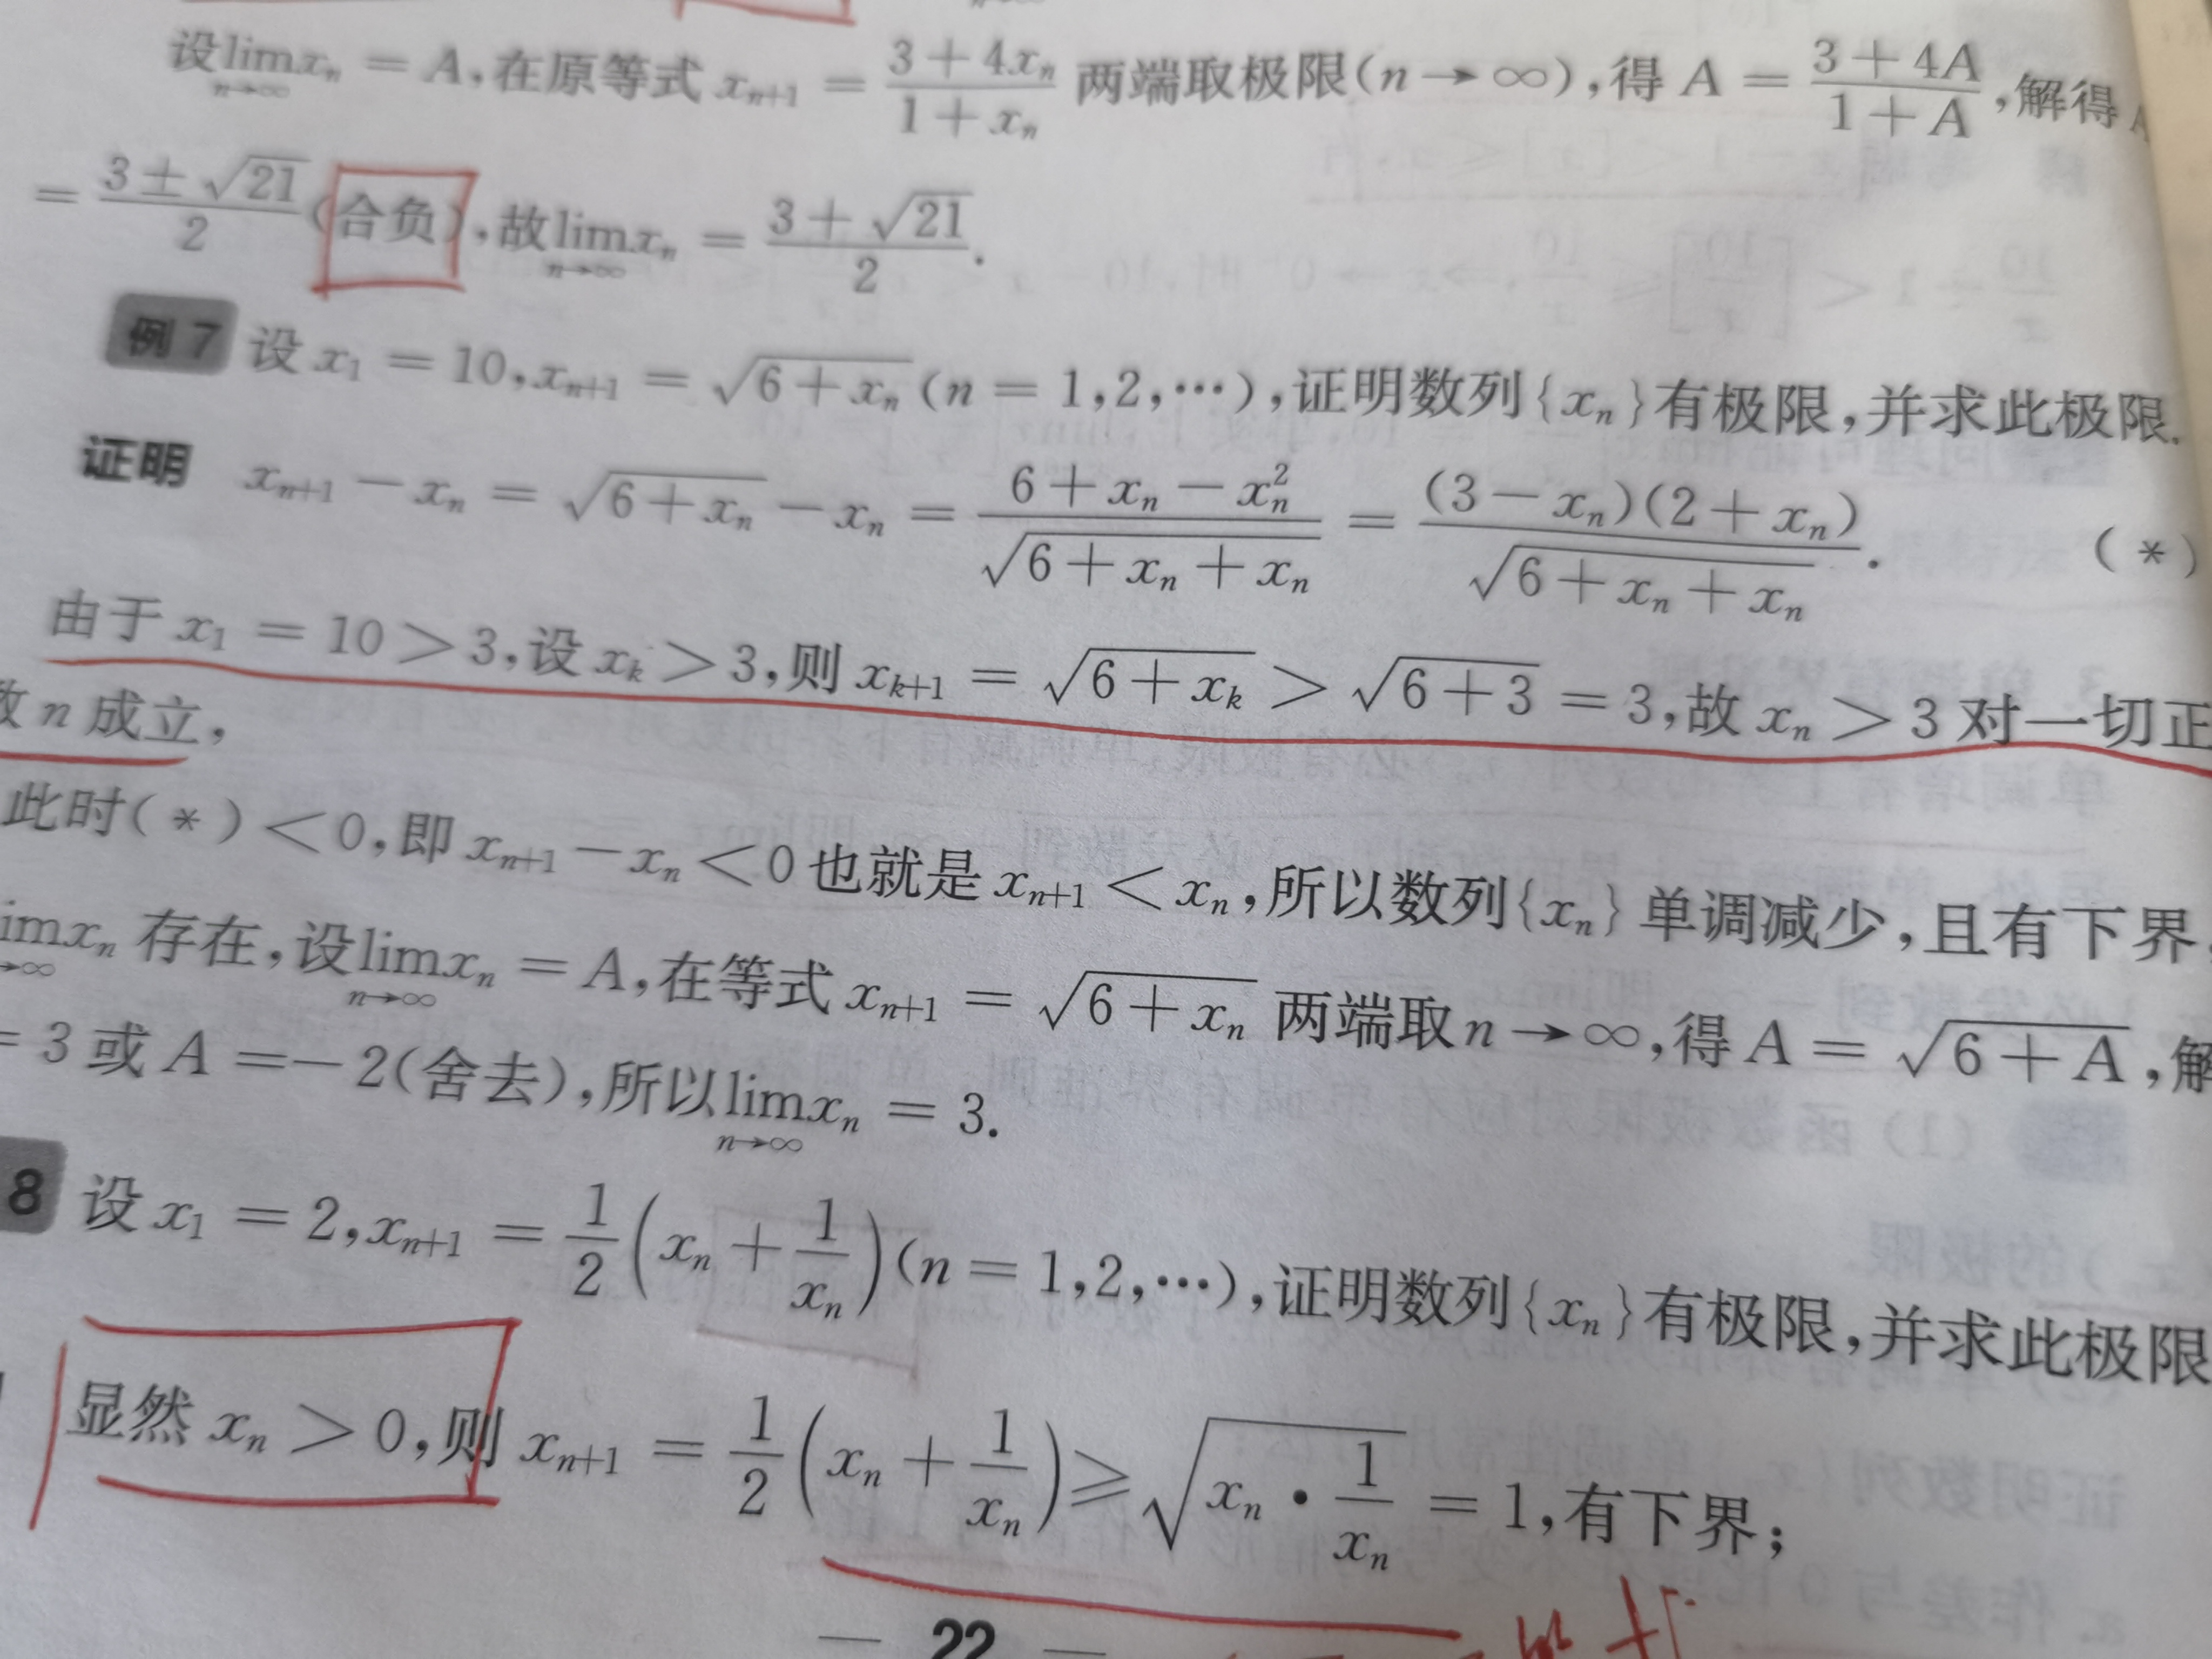 设 $\lim_{n\to\infty} x_n = A$,在原等式 $x_{n+1} = \frac{3+4x_n}{1+x_n}$ 两端取极限$(n\to\infty)$,得 $A = \frac{3+4A}{1+A}$,解得
$= \frac{3\pm\sqrt{21}}{2}$(合负),故 $\lim_{n\to\infty} x_n = \frac{3+\sqrt{21}}{2}$.
例 7 设 $x_1 = 10, x_{n+1} = \sqrt{6+x_n}$ $(n = 1,2,\cdots)$,证明数列$\{x_n\}$有极限,并求此极限.
证明 $x_{n+1} - x_n = \sqrt{6+x_n} - x_n = \frac{6+x_n-x_n^2}{\sqrt{6+x_n+x_n}} = \frac{(3-x_n)(2+x_n)}{\sqrt{6+x_n+x_n}}$. (*)
由于 $x_1 = 10 > 3$,设 $x_k > 3$,则 $x_{k+1} = \sqrt{6+x_k} > \sqrt{6+3} = 3$,故 $x_n > 3$ 对一切正
数 $n$ 成立,
此时(*)$< 0$,即 $x_{n+1} - x_n < 0$ 也就是 $x_{n+1} < x_n$,所以数列$\{x_n\}$单调减少,且有下界,
$\lim_{n\to\infty} x_n$ 存在,设 $\lim_{n\to\infty} x_n = A$,在等式 $x_{n+1} = \sqrt{6+x_n}$ 两端取 $n\to\infty$,得 $A = \sqrt{6+A}$,解
$= 3$ 或 $A = -2$(舍去),所以 $\lim_{n\to\infty} x_n = 3$.
8 设 $x_1 = 2, x_{n+1} = \frac{1}{2}\left(x_n + \frac{1}{x_n}\right)$ $(n = 1,2,\cdots)$,证明数列$\{x_n\}$有极限,并求此极限
显然 $x_n > 0$,则 $x_{n+1} = \frac{1}{2}\left(x_n + \frac{1}{x_n}\right) \geqslant \sqrt{x_n \cdot \frac{1}{x_n}} = 1$,有下界;
— 22 —